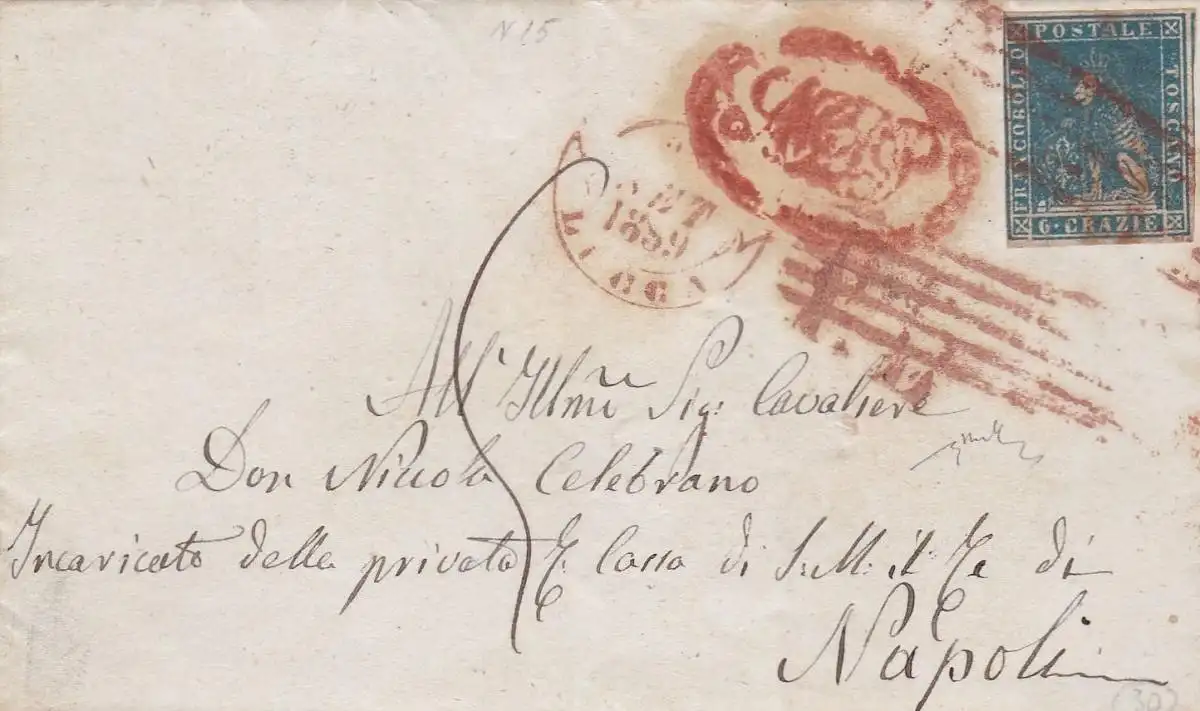 N 15
FRANCOBOLLO POSTALE TOSCANO
6 · CRAZIE
SET
1859
LUCCA
All' Illmo Sig: Cavaliere
Don Niccola Celebrano
Incaricato della privata R. Cassa di S: M: il Re di
Napoli
(30)